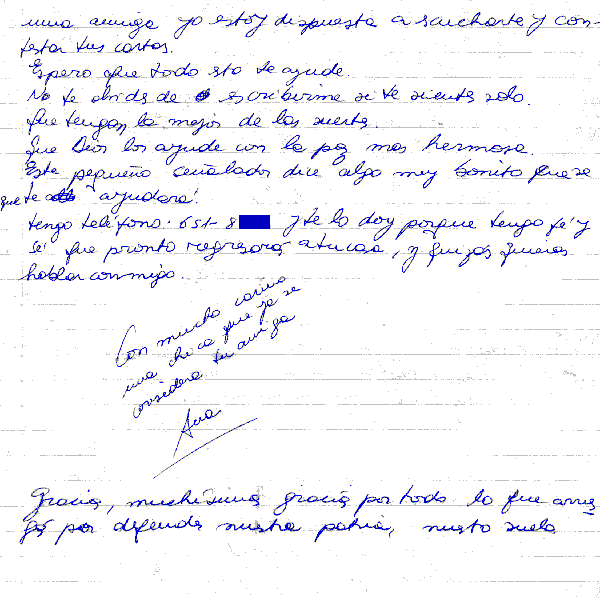 una amiga yo estoy dispuesta a escucharte y con-
testar tus cartas.
Espero que todo esto te ayude.
No te olvides de escribirme si te sientes solo.
Que tengan la mejor de las suertes.
Que Dios los ayude con la paz mas hermosa.
Este pequeño señalador dice algo muy bonito que se
que te ayudara.
tengo teléfono. 651-8 y te lo doy porque tengo fé y
sé que pronto regresarás a tu casa, y quizás quieras
hablar conmigo.
Con mucho cariño
una chica que ya se
considera tu amiga
Ana
Gracias, muchisimas gracias por todo lo que arries
gás por defender nuestra patria, nuestro suelo